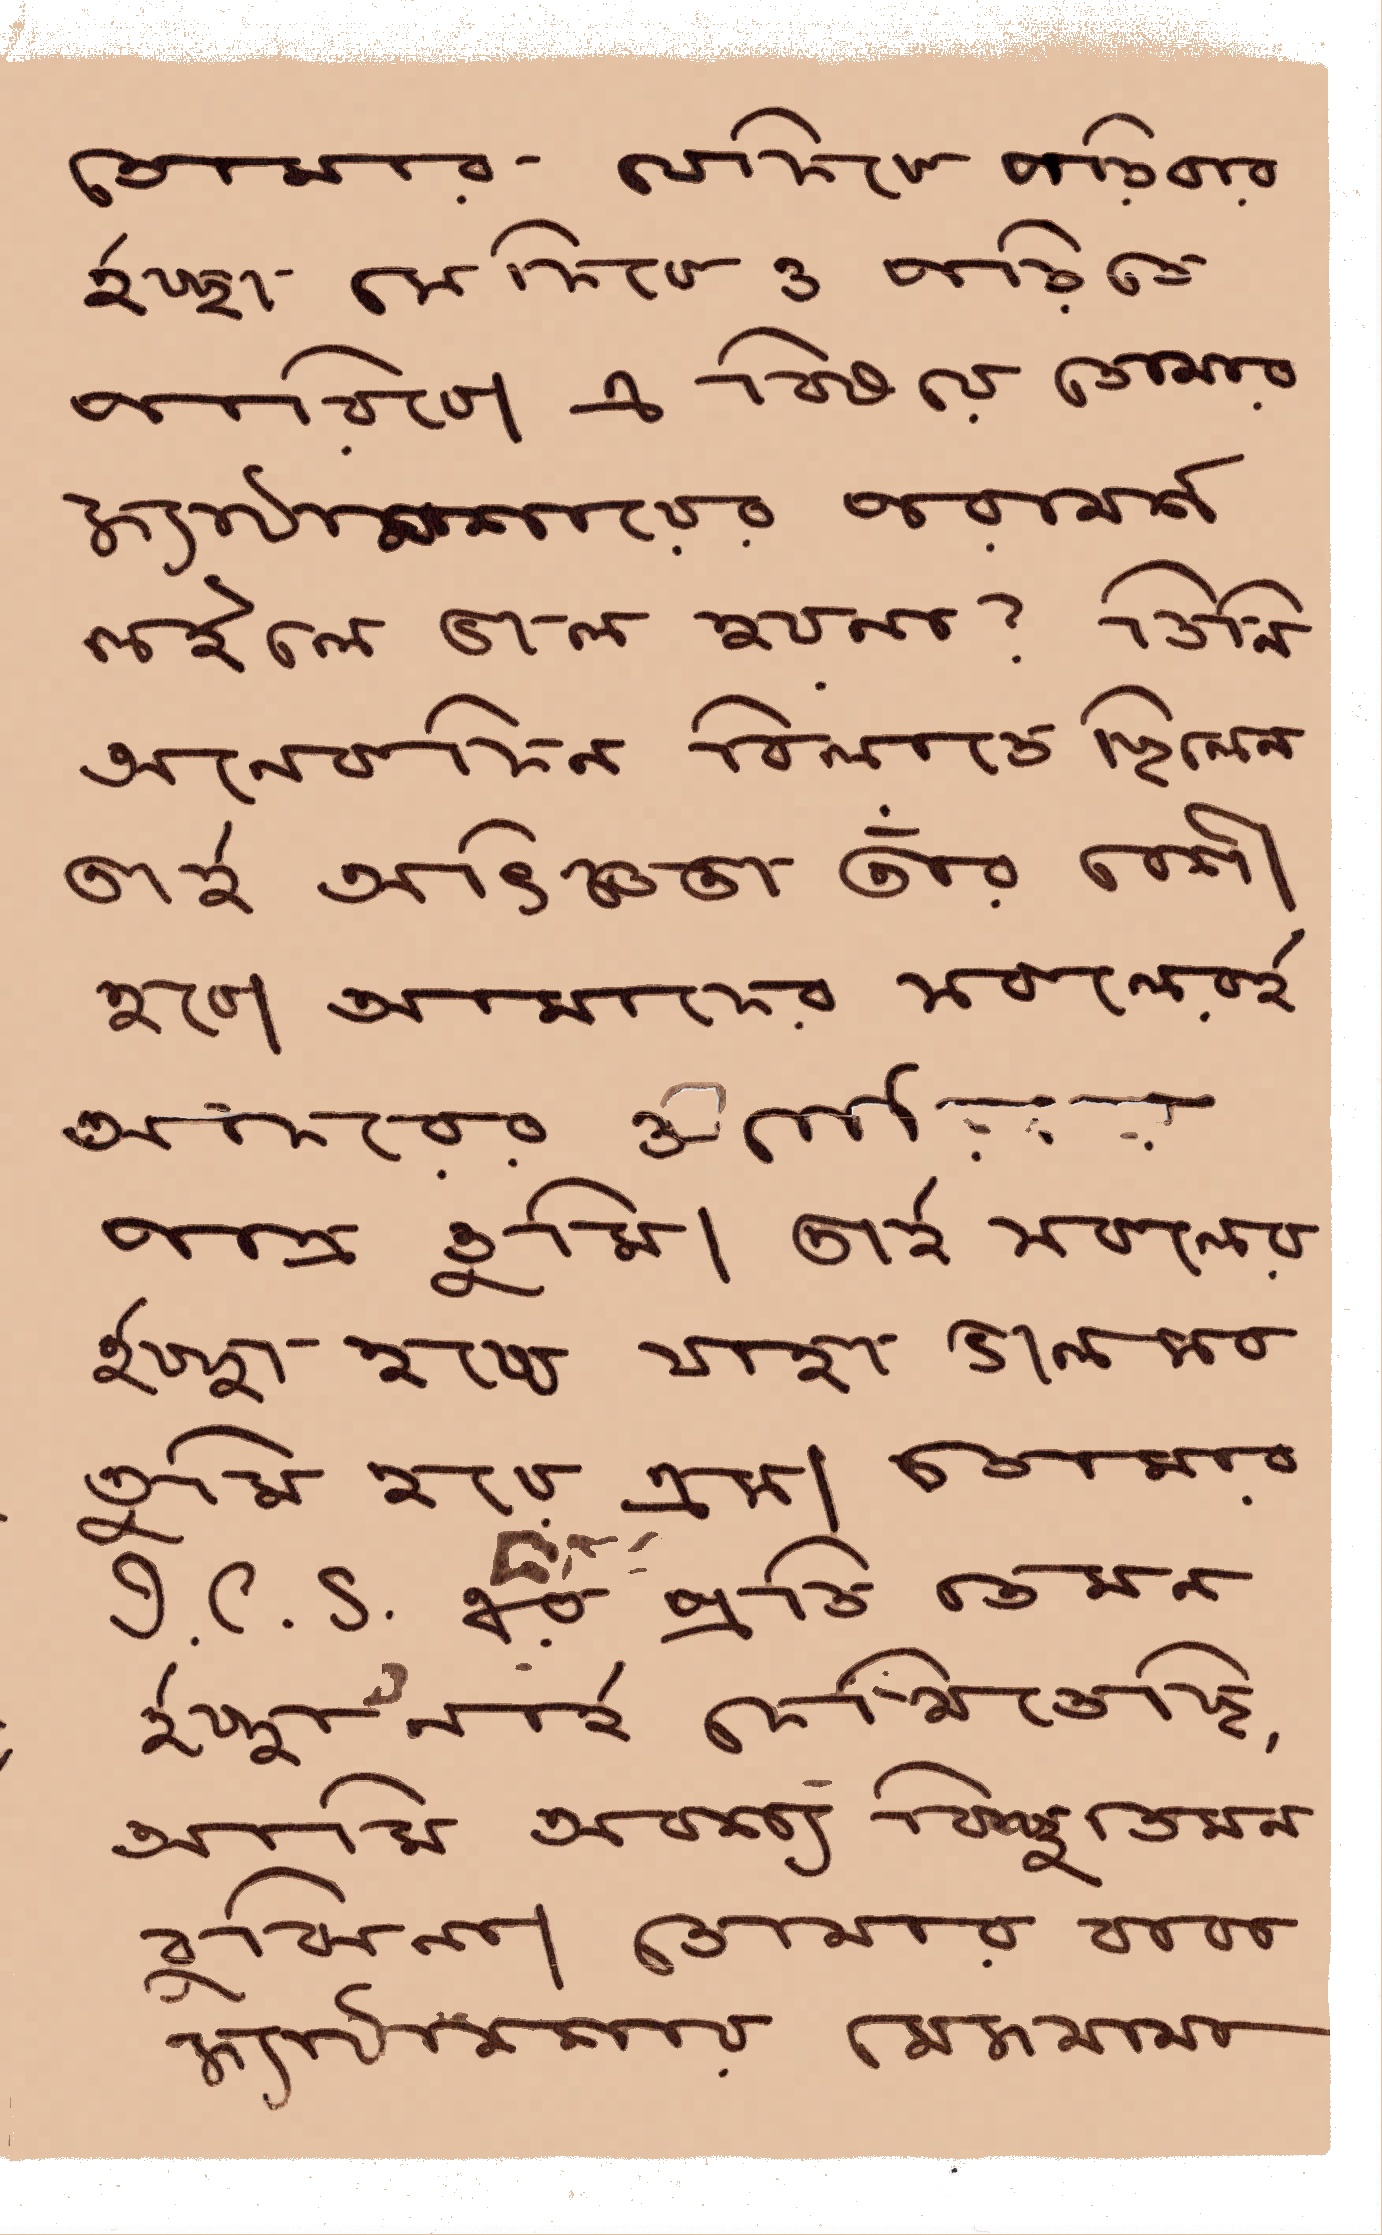 তোমার যেদিকে পড়িবার
ইচ্ছা সেদিকে ও পড়িতে
পারিবে। এ বিষয়ে তোমার
জ্যাঠামশায়ের পরামর্শ
লইলে ভাল হয়না? তিনি
অনেকদিন বিলাতে ছিলেন
তাই অভিজ্ঞতা তাঁর বেশী
হবে। আমাদের সকলেরই
আদরের ও
পাত্র তুমি। তাই সকলের
ইচ্ছা হচ্ছে যাহা ভাল সব
তুমি হয়ে এস। তোমার
I.C.S. এর প্রতি তেমন
ইচ্ছা নাই দেখিতেছি,
আমি অবশ্য কিছু তেমন
বুঝিনা। তোমার বাবা
জ্যাঠামশায় মেজমামা